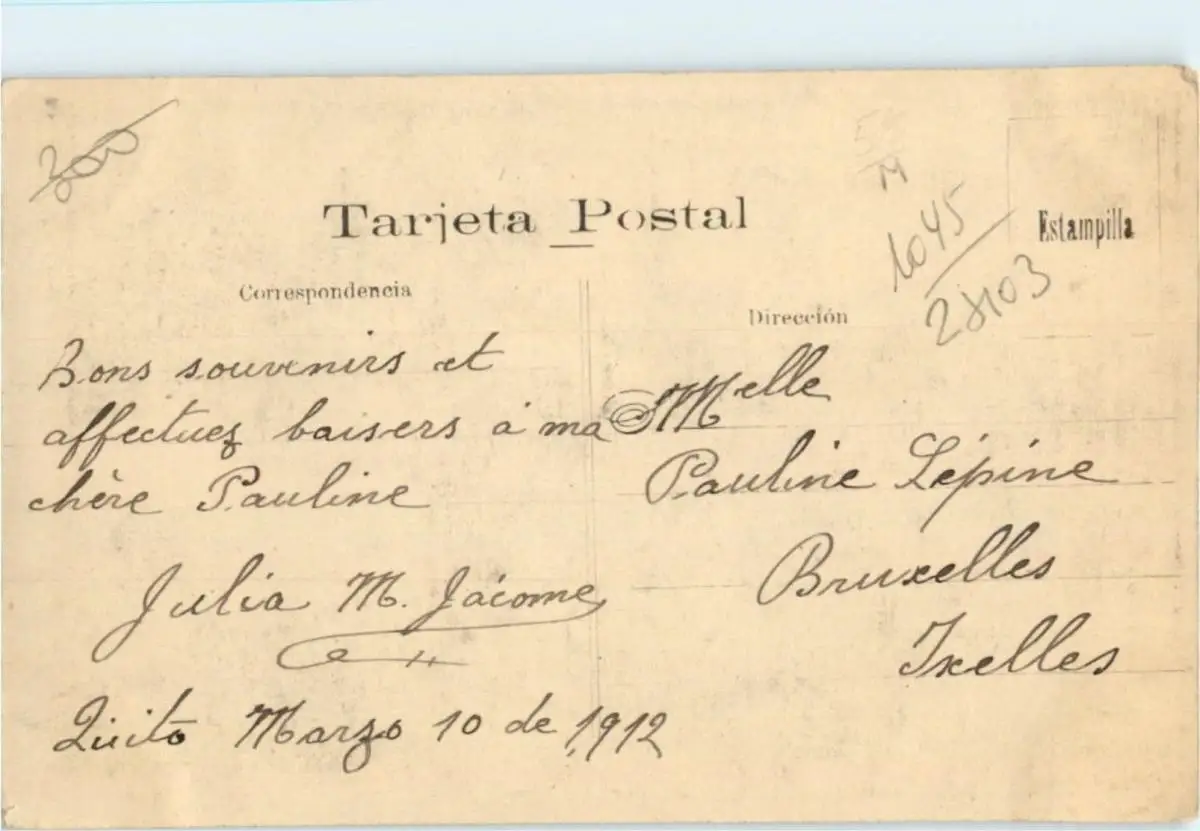 300
Tarjeta Postal
Estampilla
1045
Correspondencia
Dirección
Bons souvenirs et
affectuez baisers à ma
chère Pauline
Julia M. Jácome
Quito Marzo 10 de 1912
Melle
Pauline Lépine
Bruxelles
Ixelles